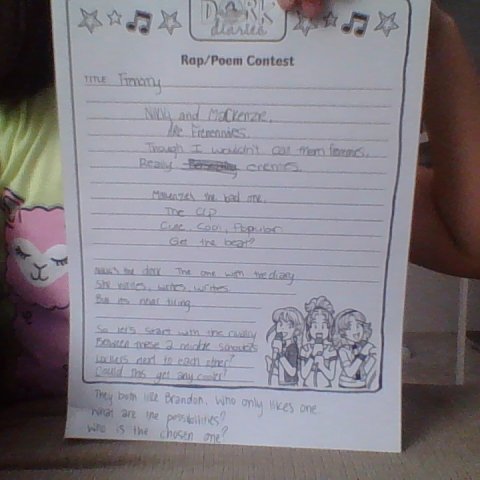 DORK
diaries
Rap/Poem Contest
TITLE: Frenemy
Nikki and Mackenzie,
Are Frenemies.
Though I wouldn't call them femmes,
Really enemies.
Mackenzie's the bad one,
The CCP
Cute, Cool, Popular
Get the beat?
Nikki's the dork. The one with the diary
She writes, writes, writes.
But its never tiring
So let's start with the rivalry
Between these 2 middle schoolers
Lockers next to each other?
Could this get any cooler?
They both like Brandon. Who only likes one
What are the possibilities?
Who is the chosen one?